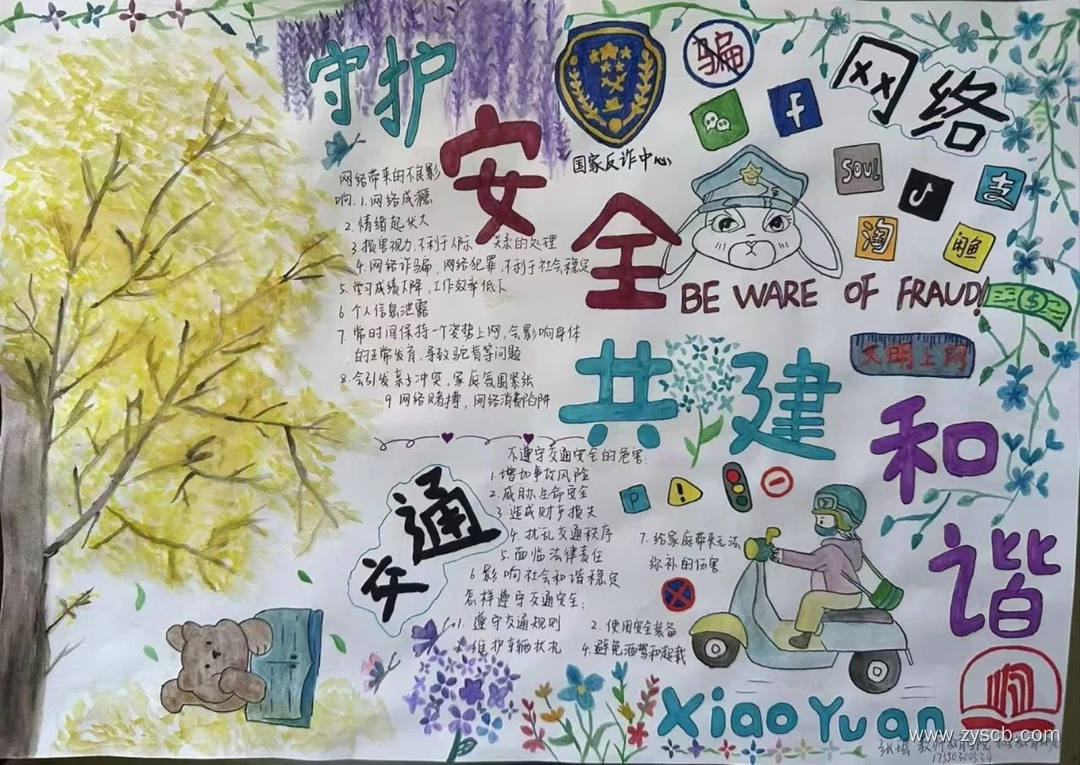 守护
安
全
国家反诈中心
骗
f
网络
SOUL
支
淘
闲鱼
BE WARE OF FRAUD!
$
文明上网
网络带来的不良影
响:1.网络成瘾
2.情绪起伏大
3.损害视力,不利于人际关系的处理
4.网络诈骗,网络犯罪,不利于社会稳定
5.学习成绩下降,工作效率低下
6 个人信息泄露
7.常时间保持一个姿势上网,会影响身体
的正常发育,导致驼背等问题
8.会引发亲子冲突,家庭氛围紧张
9 网络赌博,网络消费陷阱
共 建
和
谐
交通
不遵守交通安全的危害:
1.增加事故风险
2.威胁生命安全
3 造成财产损失
4.扰乱交通秩序
5.面临法律责任
6 影响社会和谐稳定
7.给家庭带来无法
弥补的伤害
P
!
怎样遵守交通安全:
1.遵守交通规则
2.使用安全装备
维护车辆状况
4.避免酒驾和超载
Xiao Yuan
www.zyscb.com